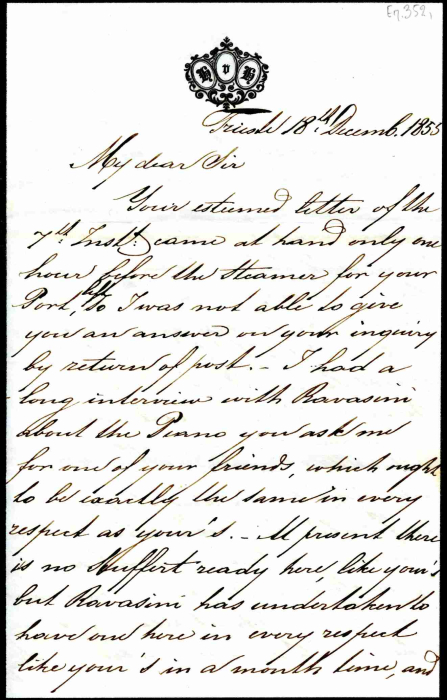 En. 352,
H v H
Trieste 18th Decemb. 1855
My dear Sir
Your esteemed letter of the
7th Instt: came at hand only one
hour before the Steamer for your
Port, so I was not able to give
you an answer on your inquiry
by return of post. – I had a
long interview with Ravasini
about the Piano you ask me
for one of your friends, which ought
to be exactly the same in every
respect as your's. – At present there
is no ready here, like your's
but Ravasini has undertaken to
have one here in every respect
like your's in a month time, and